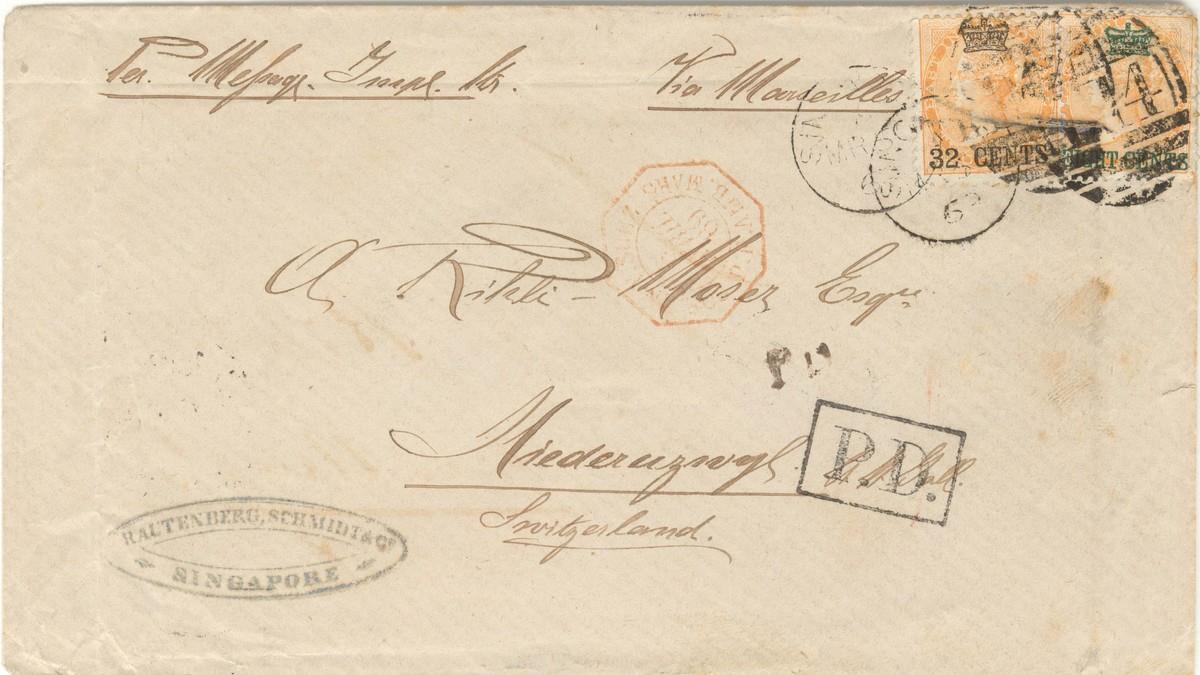 Per Messag. Impl. Str.
Via Marseilles
32 CENTS
EIGHT CENTS
SINGAPORE
MR
69
A. Rikli - Moser Esqre
P.D.
Niederuzwyl St. Gall
Switzerland.
RAUTENBERG, SCHMIDT & Co
SINGAPORE